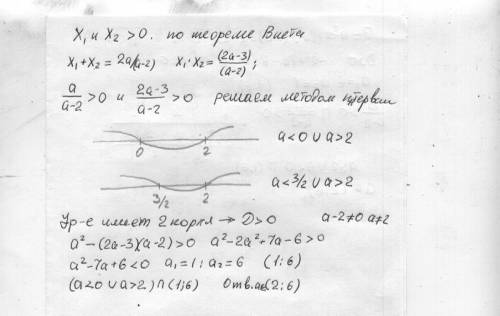 X₁ и X₂ >0. по теореме Виета
X₁+X₂ = 2a/(a-2) X₁·X₂ = (2a-3)/(a-2);
a/(a-2) >0 и (2a-3)/(a-2) >0 решаем методом интервал
0 2 a<0 ∪ a>2
3/2 2 a<3/2 ∪ a>2
Ур-е имеет 2 корня → D>0 a-2≠0 a≠2
a²-(2a-3)(a-2)>0 a²-2a²+7a-6>0
a²-7a+6<0 a₁=1; a₂=6 (1;6)
(a<0 ∪ a>2)∩(1;6) Отв. a∈(2;6)